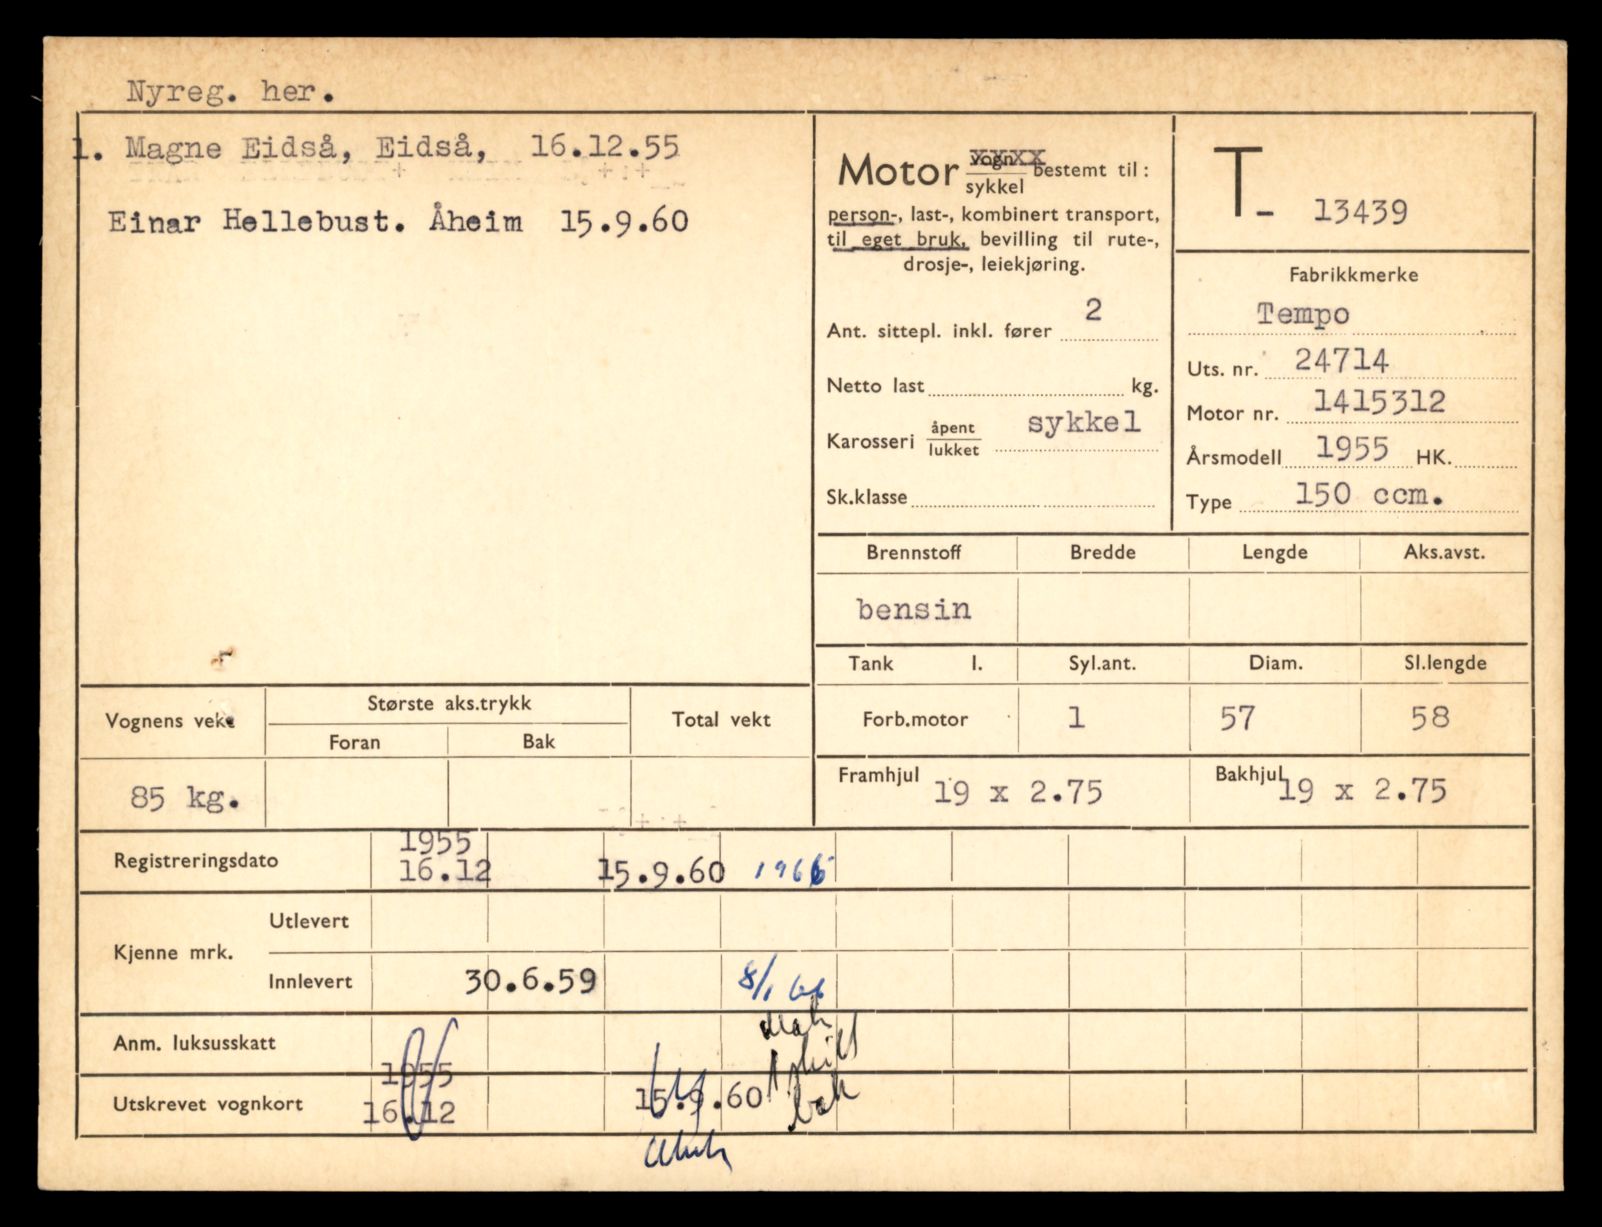 Nyreg. her.
1. Magne Eidså, Eidså, 16.12.55
Einar Hellebust. Åheim 15.9.60
Motor vogn/sykkel bestemt til:
person-, last-, kombinert transport,
til eget bruk, bevilling til rute-,
drosje-, leiekjøring.
Ant. sittepl. inkl. fører 2
Netto last kg.
Karosseri åpent/lukket sykkel
Sk.klasse
T- 13439
Fabrikkmerke
Tempo
Uts. nr. 24714
Motor nr. 1415312
Årsmodell 1955 HK.
Type 150 ccm.
Brennstoff Bredde Lengde Aks.avst.
bensin
Tank l. Syl.ant. Diam. Sl.lengde
Forb.motor 1 57 58
Framhjul 19 x 2.75 Bakhjul 19 x 2.75
Vognens vekt Største aks.trykk Total vekt
Foran Bak
85 kg.
1955
Registreringsdato 16.12 15.9.60 1966
Kjenne mrk.
Utlevert
Innlevert 30.6.59 8/1 66
Anm. luksusskatt
1955
Utskrevet vognkort 16.12 15.9.60
1 skilt
bak